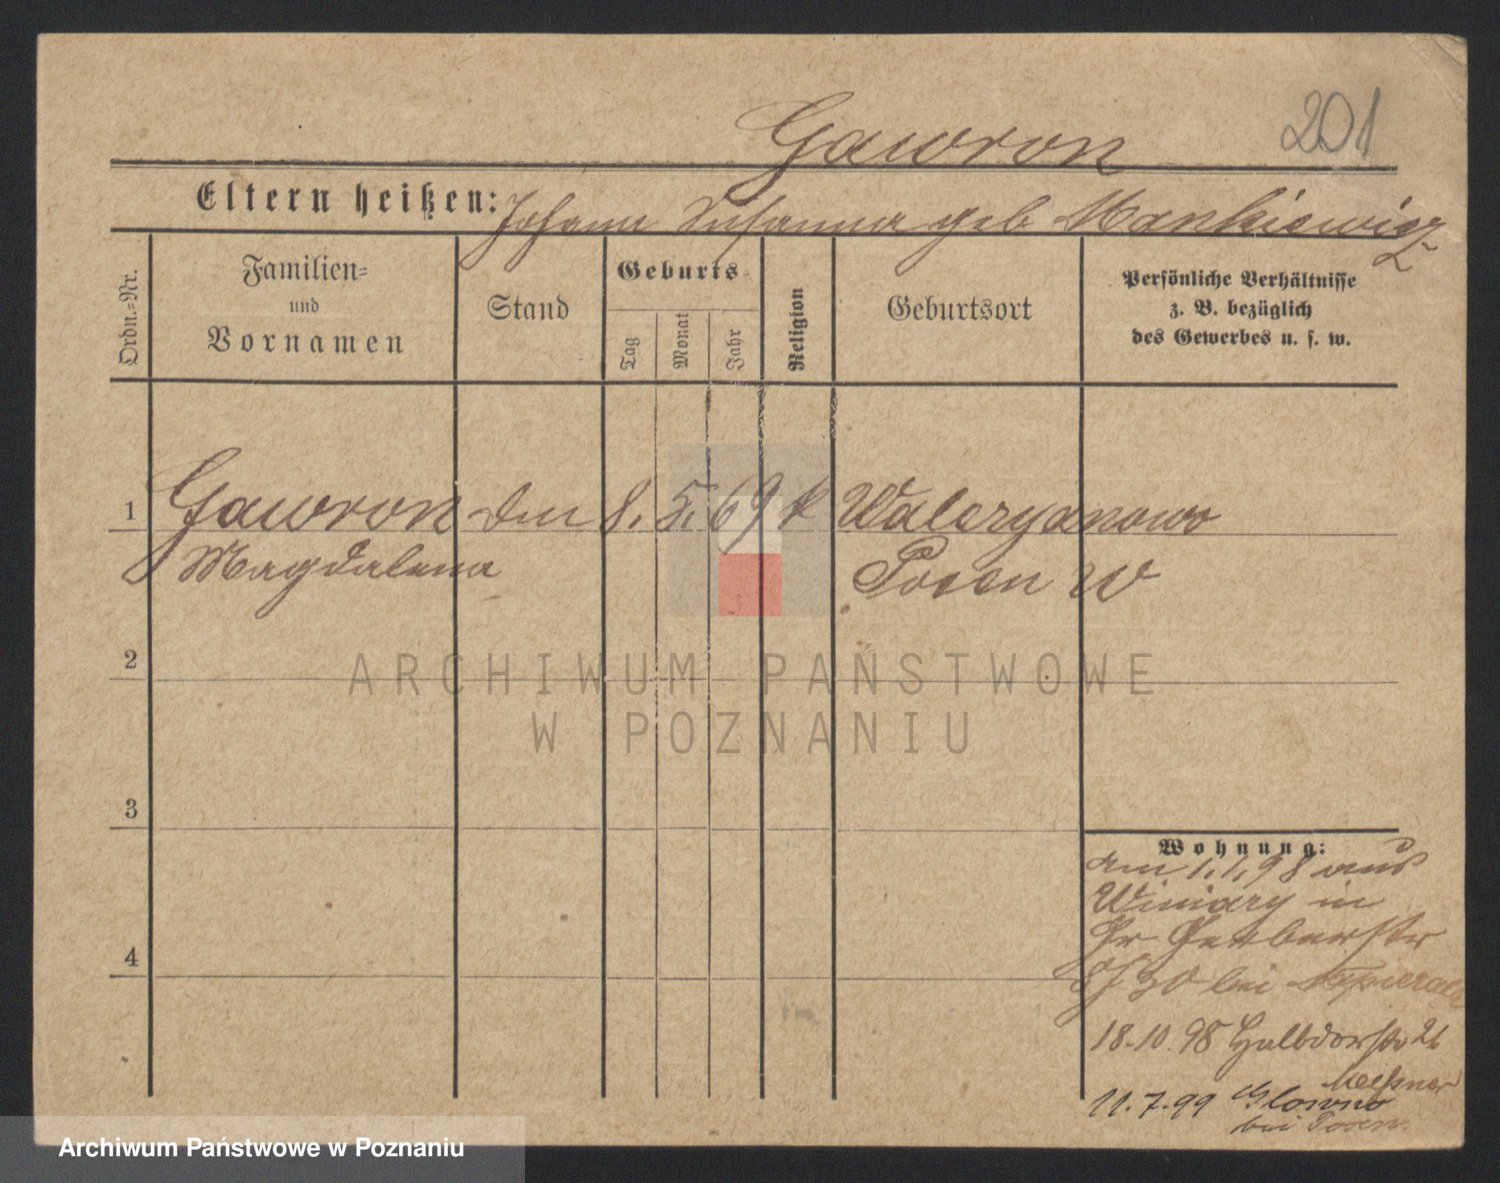 201
Gawron
Eltern heißen: Johann Susanna geb Mankiewicz
Ordn.-Nr.
Familien-
und
Vornamen
Stand
Geburts-
Tag
Monat
Jahr
Religion
Geburtsort
Persönliche Verhältnisse
z. B. bezüglich
des Gewerbes u. s. w.
1 Gawron 8. 5. 69 k Waleryanowo
Magdalena Posen W
2
3
4
Wohnung:
am 1.1.98 aus
Winiary in
Gr Gerberstr
8/30 bei
18.10.98 Halbdorfstr 21
Meßner
11.7.99 Glowno
bei Posen.
ARCHIWUM PAŃSTWOWE
W POZNANIU
Archiwum Państwowe w Poznaniu